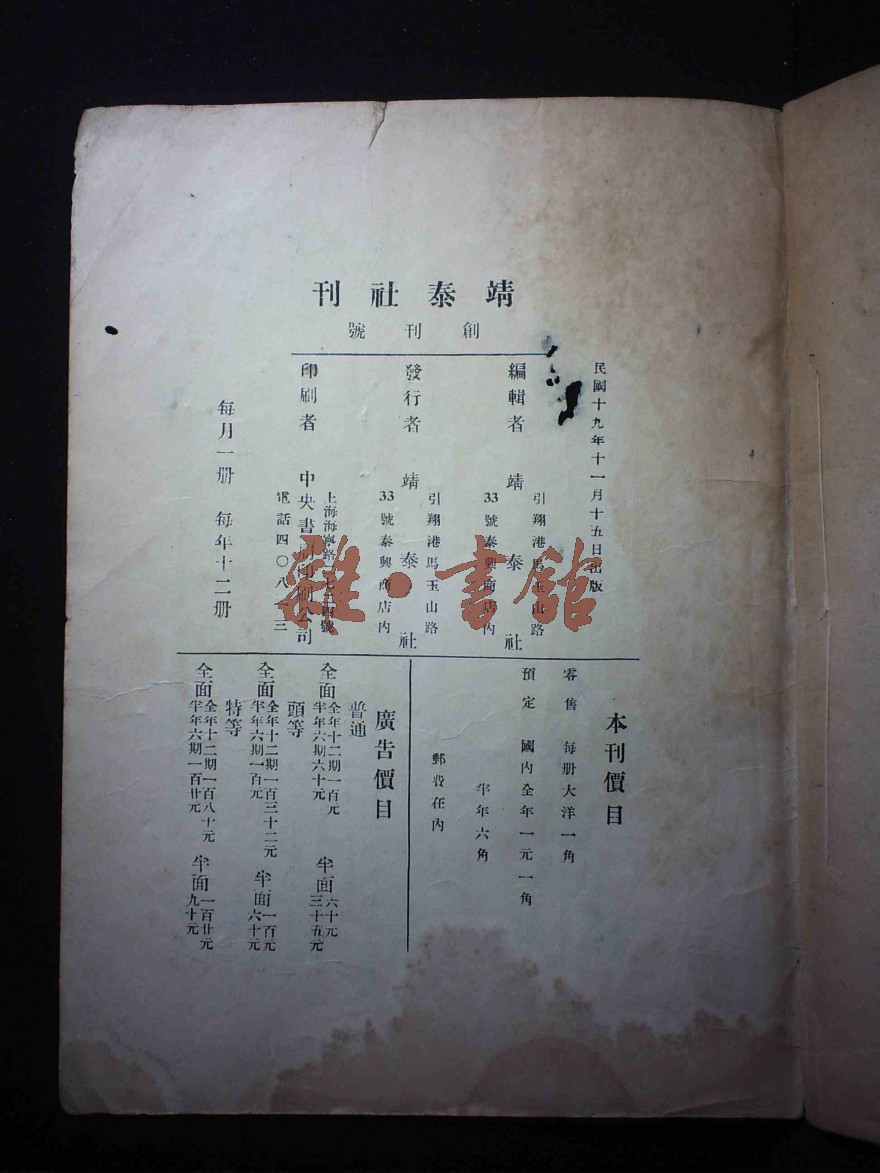 靖泰社刊
創刊號
民國十九年十一月十五日出版
編輯者 靖泰社
引翔港馬玉山路
33號泰興商店內
發行者 靖泰社
引翔港馬玉山路
33號泰興商店內
印刷者 中央書局印刷公司
上海海寧路 號
電話四〇八 三
每月一册 每年十二册
本刊價目
零售 每册大洋一角
預定 國內全年一元一角
半年六角
郵費在內
廣告價目
普通
全面 全年十二期一百元 半面 六十元
半年六期六十元 三十五元
頭等
全面 全年十二期一百三十二元 半面 一百元
半年六期一百元 六十元
特等
全面 全年十二期一百八十元 半面 一百廿元
半年六期一百廿元 九十元
雜·書館